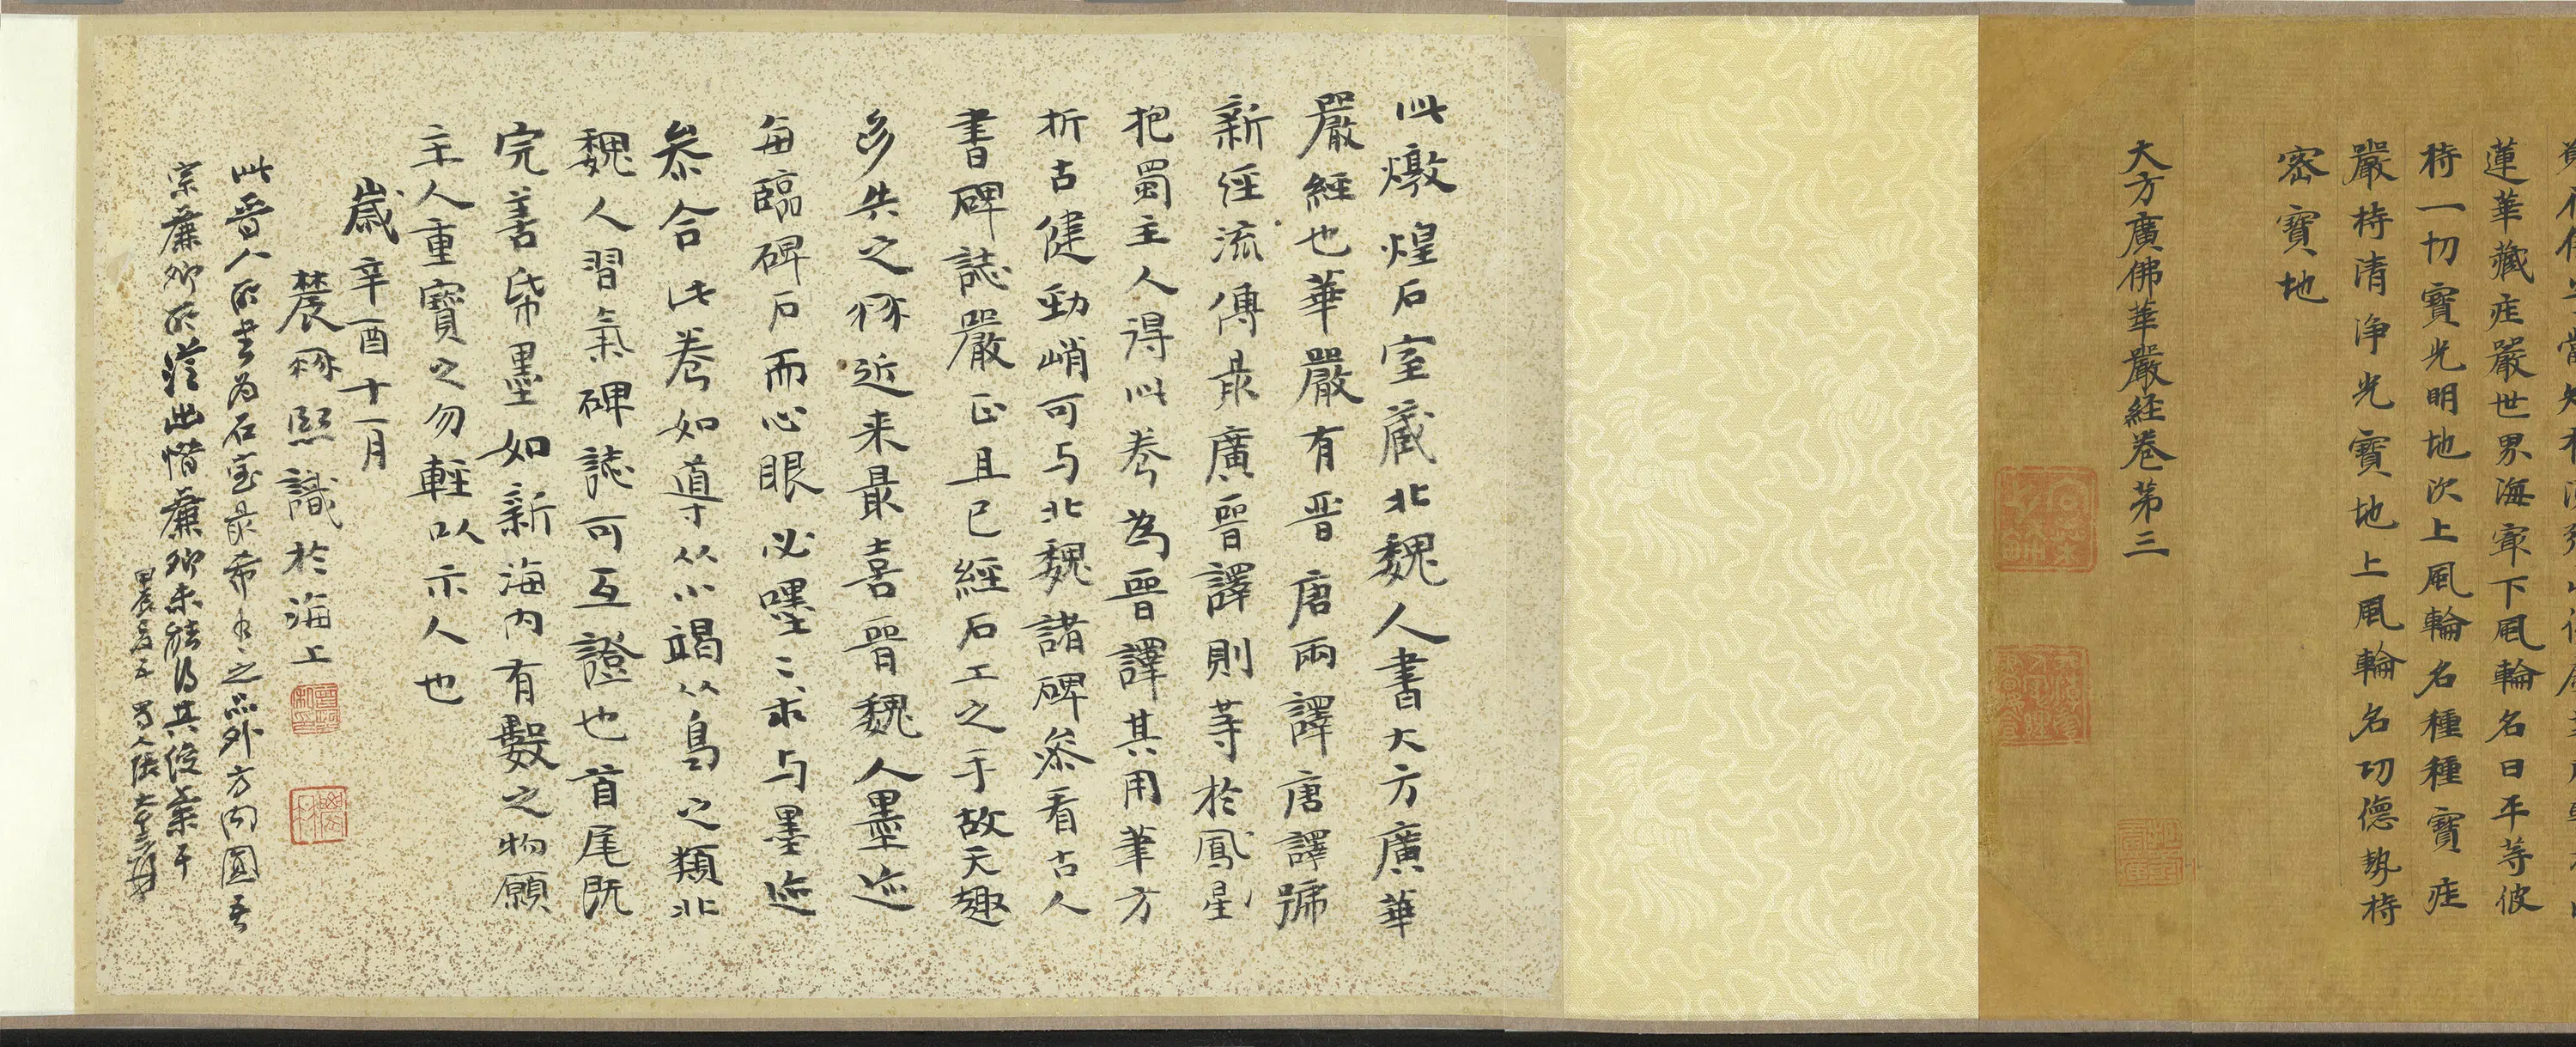 蓮華藏庄嚴世界海䆿下風輪名曰平等彼
持一切寶光明地次上風輪名種種寶庄
嚴持清淨光寶地上風輪名功德勢持
密寶地
大方廣佛華嚴経卷第三
此燉煌石室藏北魏人書大方廣華
嚴經也華嚴有晉唐兩譯唐譯號
新經流傳最廣晉譯則等於鳳星
把蜀主人得此卷為晉譯其用筆方
折古健勁峭可与北魏諸碑叅看古人
書碑誌嚴正且已經石工之手故天趣
多失之
近来最喜晉魏人墨迹
每臨碑石而心眼必嘿嘿〻求与墨迹
叅合此卷如導从小竭从鳥之類北
魏人習氣碑誌可互證也首尾既
完善帋墨如新海内有數之物願
主人重寶之勿輕以示人也
歲辛酉十一月
農髯熙識於海上
此晉人所書為石室最希有之品外方内圓吾
宗廉卿所從出惜廉卿未能得其俊秉耳
甲辰 蜀人張大千爰